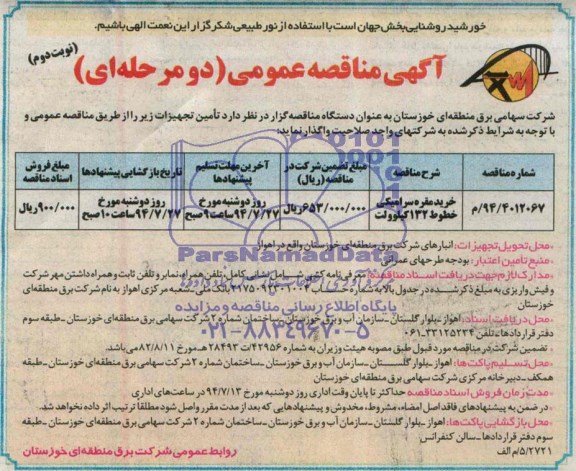 خورشید روشنایی‌بخش جهان است با استفاده از نور طبیعی شکرگزار این نعمت الهی باشیم.
آگهی مناقصه عمومی (دو مرحله‌ای) (نوبت دوم)
شرکت سهامی برق منطقه‌ای خوزستان به عنوان دستگاه مناقصه‌گزار در نظر دارد تأمین تجهیزات زیر را از طریق مناقصه عمومی و
با توجه به شرایط ذکر شده به شرکتهای واجد صلاحیت واگذار نماید:
شماره مناقصه | شرح مناقصه | مبلغ تضمین شرکت در مناقصه (ریال) | آخرین مهلت تسلیم پیشنهادها | تاریخ بازگشایی پیشنهادها | مبلغ فروش اسناد مناقصه
۹۴/۴۰۱۲۰۶۷/م | خرید مقره سرامیکی خطوط ۱۳۲ کیلوولت | ۶۵۳/۰۰۰/۰۰۰ ریال | روز دوشنبه مورخ ۹۴/۷/۲۷ ساعت ۹ صبح | روز دوشنبه مورخ ۹۴/۷/۲۷ ساعت ۱۰ صبح | ۹۰۰/۰۰۰ ریال
-محل تحویل تجهیزات: انبارهای شرکت برق منطقه‌ای خوزستان واقع در اهواز
-منبع تأمین اعتبار: بودجه طرحهای عمرانی
-مدارک لازم جهت دریافت اسناد مناقصه: معرفی‌نامه کتبی شامل نشانی کامل، تلفن همراه، نمابر و تلفن ثابت و همراه داشتن مهر شرکت
و فیش واریزی به مبلغ ذکر شده در جدول بالا به شماره حساب بانک ملی شعبه مرکزی اهواز به نام شرکت برق منطقه‌ای
خوزستان
-محل دریافت اسناد: اهواز -بلوار گلستان -سازمان آب و برق خوزستان -ساختمان شماره ۲ شرکت سهامی برق منطقه‌ای خوزستان -طبقه سوم
دفتر قراردادها -تلفن ۳۳۱۲۵۲۳۴-۰۶۱
- تضمین شرکت در مناقصه مورد قبول طبق مصوبه هیئت وزیران به شماره ۴۲۹۵۶/ت ۲۸۴۹۳ هـ مورخ ۸۲/۸/۱۱ می‌باشد.
-محل تسلیم پاکت‌ها: اهواز -بلوار گلستان -سازمان آب و برق خوزستان -ساختمان شماره ۲ شرکت سهامی برق منطقه‌ای خوزستان -طبقه
همکف -دبیرخانه مرکزی شرکت سهامی برق منطقه‌ای خوزستان
-مدت زمان فروش اسناد مناقصه حداکثر تا پایان وقت اداری روز دوشنبه مورخ ۹۴/۷/۱۳ در ساعت‌های اداری
-در ضمن به پیشنهادهای فاقد اصل امضاء، مشروط، مخدوش و پیشنهادهایی که بعد از مدت مقرر واصل شود مطلقا ترتیب اثر داده نخواهد شد.
-محل بازگشایی پاکت‌ها: اهواز -بلوار گلستان -سازمان آب و برق خوزستان -ساختمان شماره ۲ شرکت سهامی برق منطقه‌ای خوزستان -طبقه
سوم دفتر قراردادها -سالن کنفرانس
۵/۲۷۲۱/م الف
روابط عمومی شرکت برق منطقه‌ای خوزستان
ParsNamadData
پایگاه اطلاع رسانی مناقصه و مزایده
۰۲۱-۸۸۳۴۹۶۷۰-۵